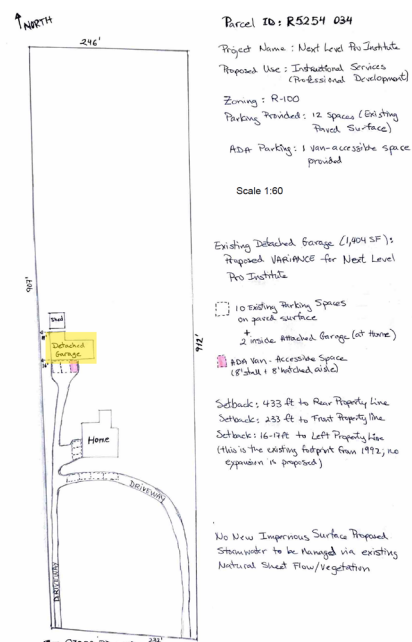 NORTH
Parcel ID: R5254 034
246'
Project Name: Next Level Pro Institute
Proposed Use: Instructional Services
(Professional Development)
Zoning: R-100
Parking Provided: 12 Spaces (Existing
Paved Surface)
ADA Parking: 1 van-accessible space
provided
Scale 1:60
Existing Detached Garage (1,404 SF):
Proposed VARIANCE for Next Level
Pro Institute
907'
912'
Shed
Detached
Garage
16'
10 Existing Parking Spaces
on paved surface
+
2 inside Attached Garage (at Home)
ADA Van-Accessible Space
(8' stall + 8' hatched aisle)
Home
Setback: 433 ft to Rear Property Line
Setback: 233 ft to Front Property line
Setback: 16-17ft to Left Property Line
(this is the existing footprint from 1992; no
expansion is proposed)
DRIVEWAY
DRIVEWAY
No New Impervious Surface Proposed
Stormwater to be Managed via existing
Natural Sheet Flow/Vegetation